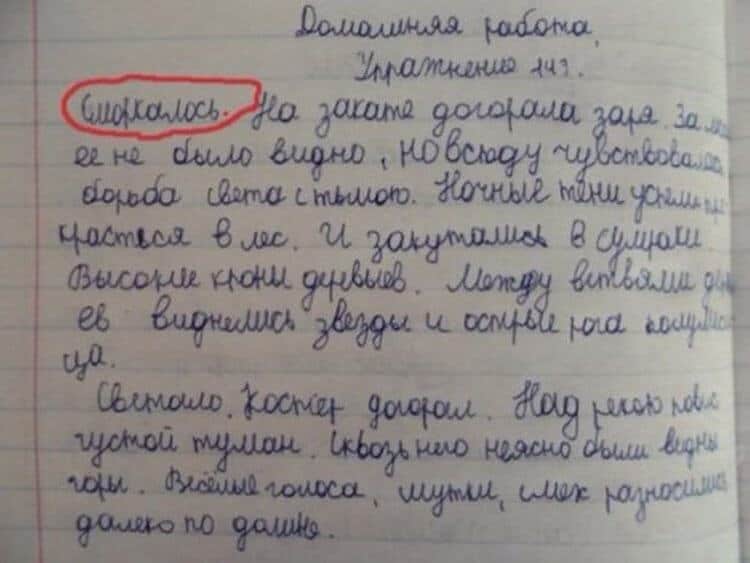 Домашняя работа.
Упражнение 143.
Сморкалось. На закате догорала заря. За
ее не было видно, но всюду чувствовалась
борьба света с тьмою. Ночные тени успели
красться в лес. И закутались в сумраки
Высокие кроны деревьев. Между ветвями
ев виднелись звезды и острые рога
ца.
Светало. Костер догорал. Над рекою повис
густой туман. Сквозь него неясно были видны
горы. Весёлые голоса, шутки, смех разносились
далеко по долине.